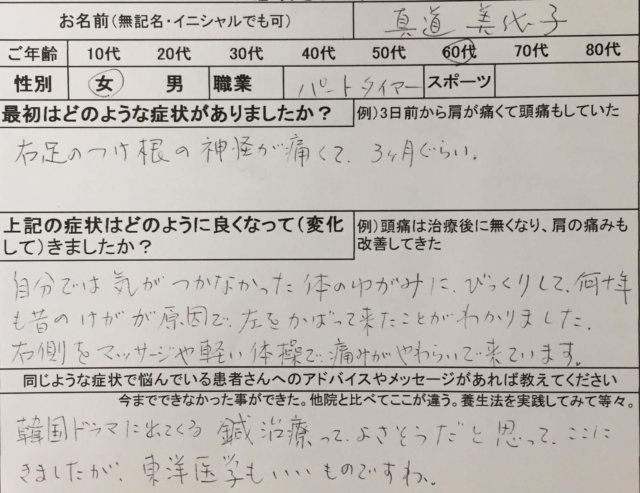 お名前（無記名・イニシャルでも可） 真道 美代子
ご年齢 10代 20代 30代 40代 50代 60代 70代 80代
性別 女 男 職業 パートタイマー スポーツ
最初はどのような症状がありましたか？ 例）3日前から肩が痛くて頭痛もしていた
右足のつけ根の神経が痛くて、3ヶ月ぐらい。
上記の症状はどのように良くなって（変化 例）頭痛は治療後に無くなり、肩の痛みも
して）きましたか？ 改善してきた
自分では気がつかなかった体のゆがみに、びっくりして、何十年
も昔のけがが原因で、左をかばって来たことがわかりました。
右側をマッサージや軽い体操で痛みがやわらいで来ています。
同じような症状で悩んでいる患者さんへのアドバイスやメッセージがあれば教えてください
今までできなかった事ができた。他院と比べてここが違う。養生法を実践してみて等々。
韓国ドラマに出てくる鍼治療って、よさそうだと思って、ここに
きましたが、東洋医学もいいものですね。